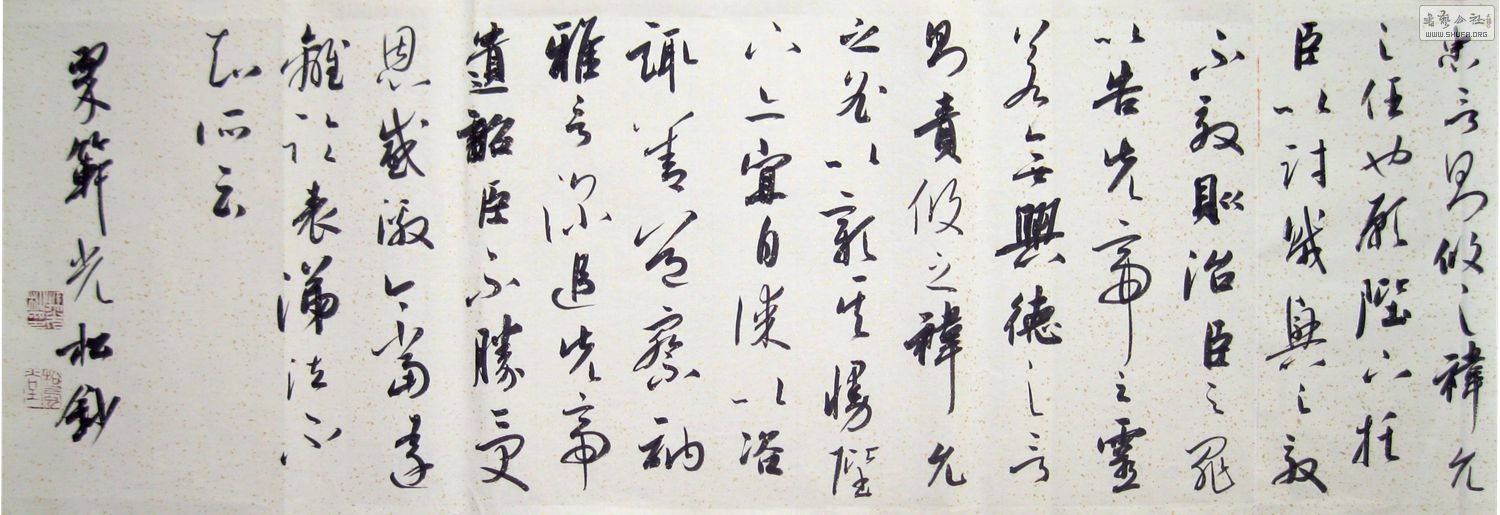 書藝公社
WWW.SHUFA.ORG
忠言則攸之禕允
之任也願陛下托
臣以討賊興之效
不效則治臣之罪
以告先帝之靈
若無興德之言
則責攸之禕允
之咎以彰其慢陛
下亦宜自謀以咨
諏善道察納
雅言深追先帝
遺詔臣不勝受
恩感激今當遠
離臨表涕泣不
知所云
光松